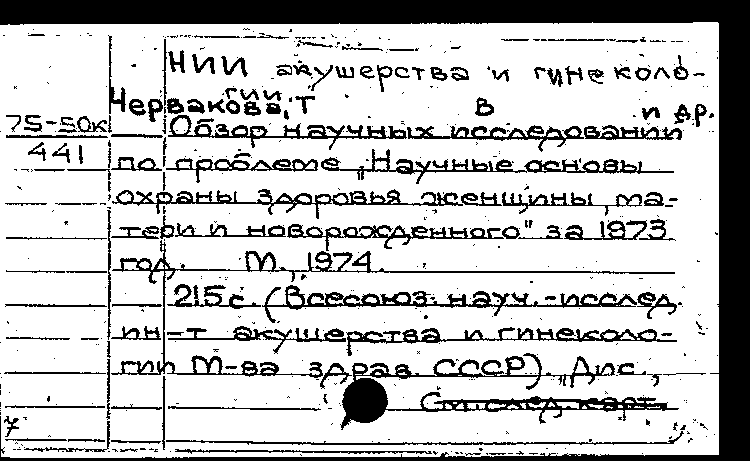 НИИ акушерства и гинеколо-
гии
Червакова, Т В и др.
75-50к Обзор научных исследований
441 по проблеме „Научные основы
охраны здоровья женщины, ма-
тери и новорожденного" за 1973
год. М., 1974.
215 с. (Всесоюз. науч.-исслед.
ин-т акушерства и гинеколо-
гии М-ва здрав. СССР). „Дис.,
См. след. карт.
7